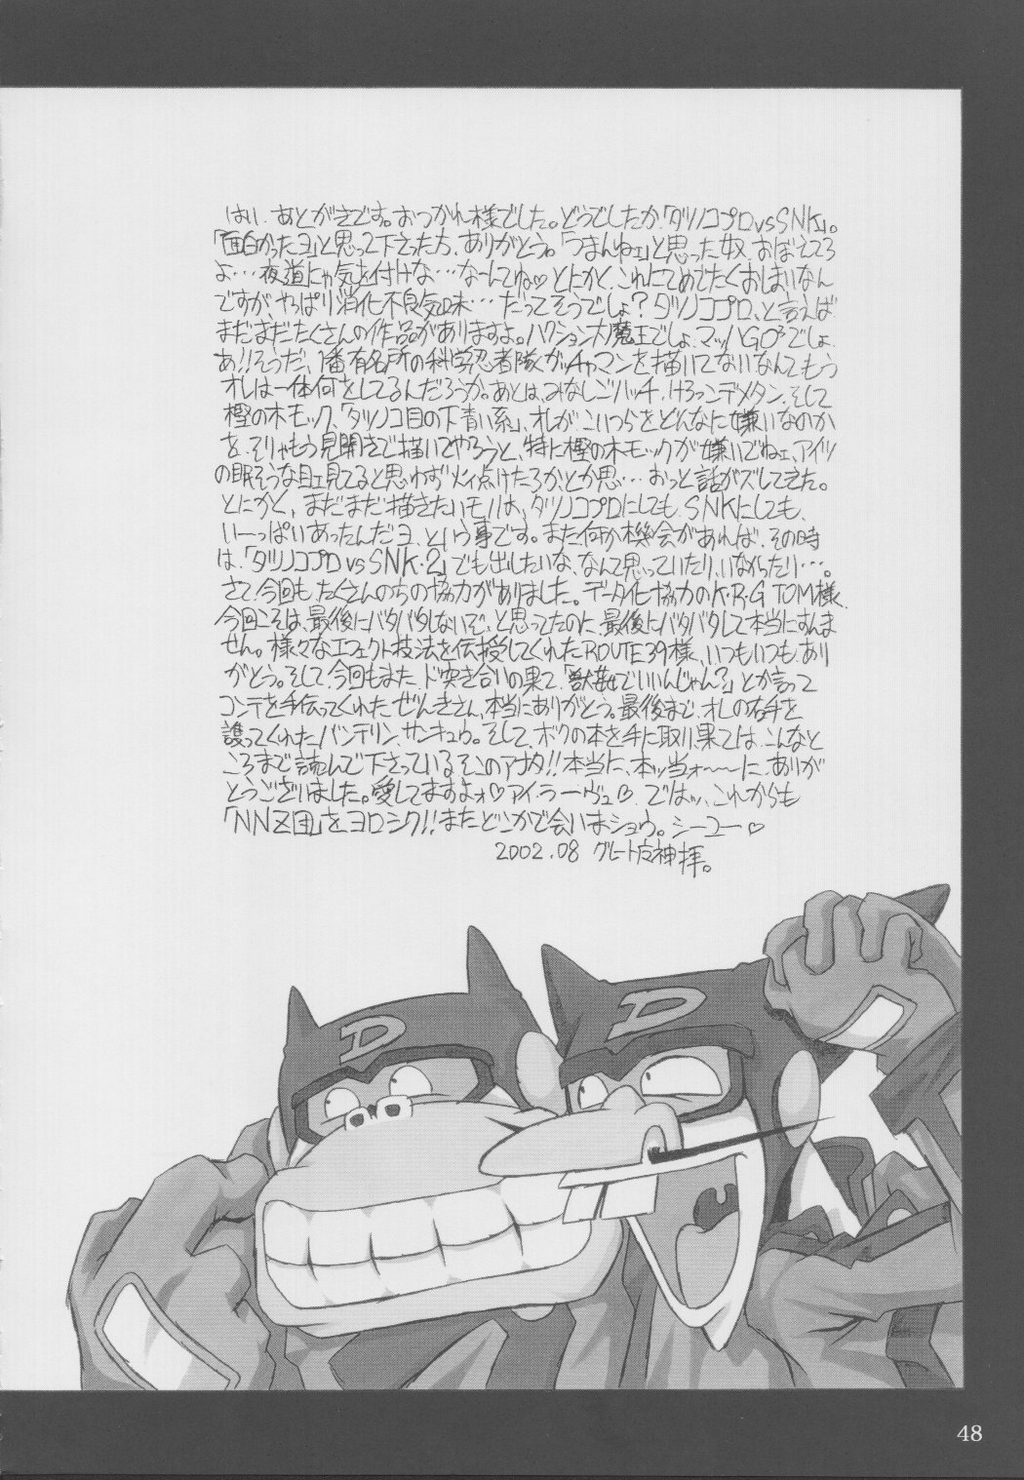 はい、あとがきです。おつかれ様でした。どうでしたか「タツノコプロvsSNK」。
「面白かったヨ」と思って下さった方、ありがとう。「つまんねェ」と思った奴、おぼえてろ
よ…夜道にゃ気を付けな…なーんてね♡とにかく、これにてめでたくおしまいなん
ですが、やっぱり消化不良気味…だってそうでしょ？タツノコプロ、と言えば
まだまだたくさんの作品がありますよ。ハクション大魔王でしょ、マッハGO³でしょ、
あ!!そうだ、1番有名所の科学忍者隊ガッチャマンを描いてないなんてもう
オレは一体何をしてるんだろうか。あとは、みなしごハッチ、けろっこデメタン、そして
樫の木モック、「タツノコ目の下青い系」、オレがこいつらをどんなに嫌いなのか
を、そりゃもう見開きで描いてやろうと、特に樫の木モックが嫌いでねェ、アイツ
の眠そうな目ェ見てると思わず火ィ点けたろか、とか思…おっと話がズレてきた。
とにかく、まだまだ描きたいモノは、タツノコプロにしても、SNKにしても、
いーっぱいあったんだヨ、という事です。また何か機会があれば、その時
は、「タツノコプロvsSNK・2」でも出したいな、なんて思っていたり、いなかったり…。
さて、今回も、たくさんの方の協力がありました。データ化協力のK・R・G TOM様、
今回こそは、最後にバタバタしないぞ、と思ってたのに、最後にバタバタして本当にすんま
せん。様々なエフェクト技法を伝授してくれたROUTE39様、いつもいつも、あり
がとう。そして、今回もまた、ド突き合いの果て、「獣姦でいいんじゃん？」とか言って
コンテを手伝ってくれた、ぜんきさん、本当にありがとう。最後まで、オレの右手を
護ってくれたバンテリン、サンキュウ。そして、ボクの本を手に取り、果ては、こんなと
ころまで読んで下さっているそこのアナタ!!本当に、本ッ当ォ〜〜に、ありが
とうございました。愛してますよォ♡アイラーヴュ♡ではッ、これからも
「NNZ団」を、ヨロシク!!またどこかで会いましょウ。シーユー♡
2002.08 グレート神拝。
D
D
48